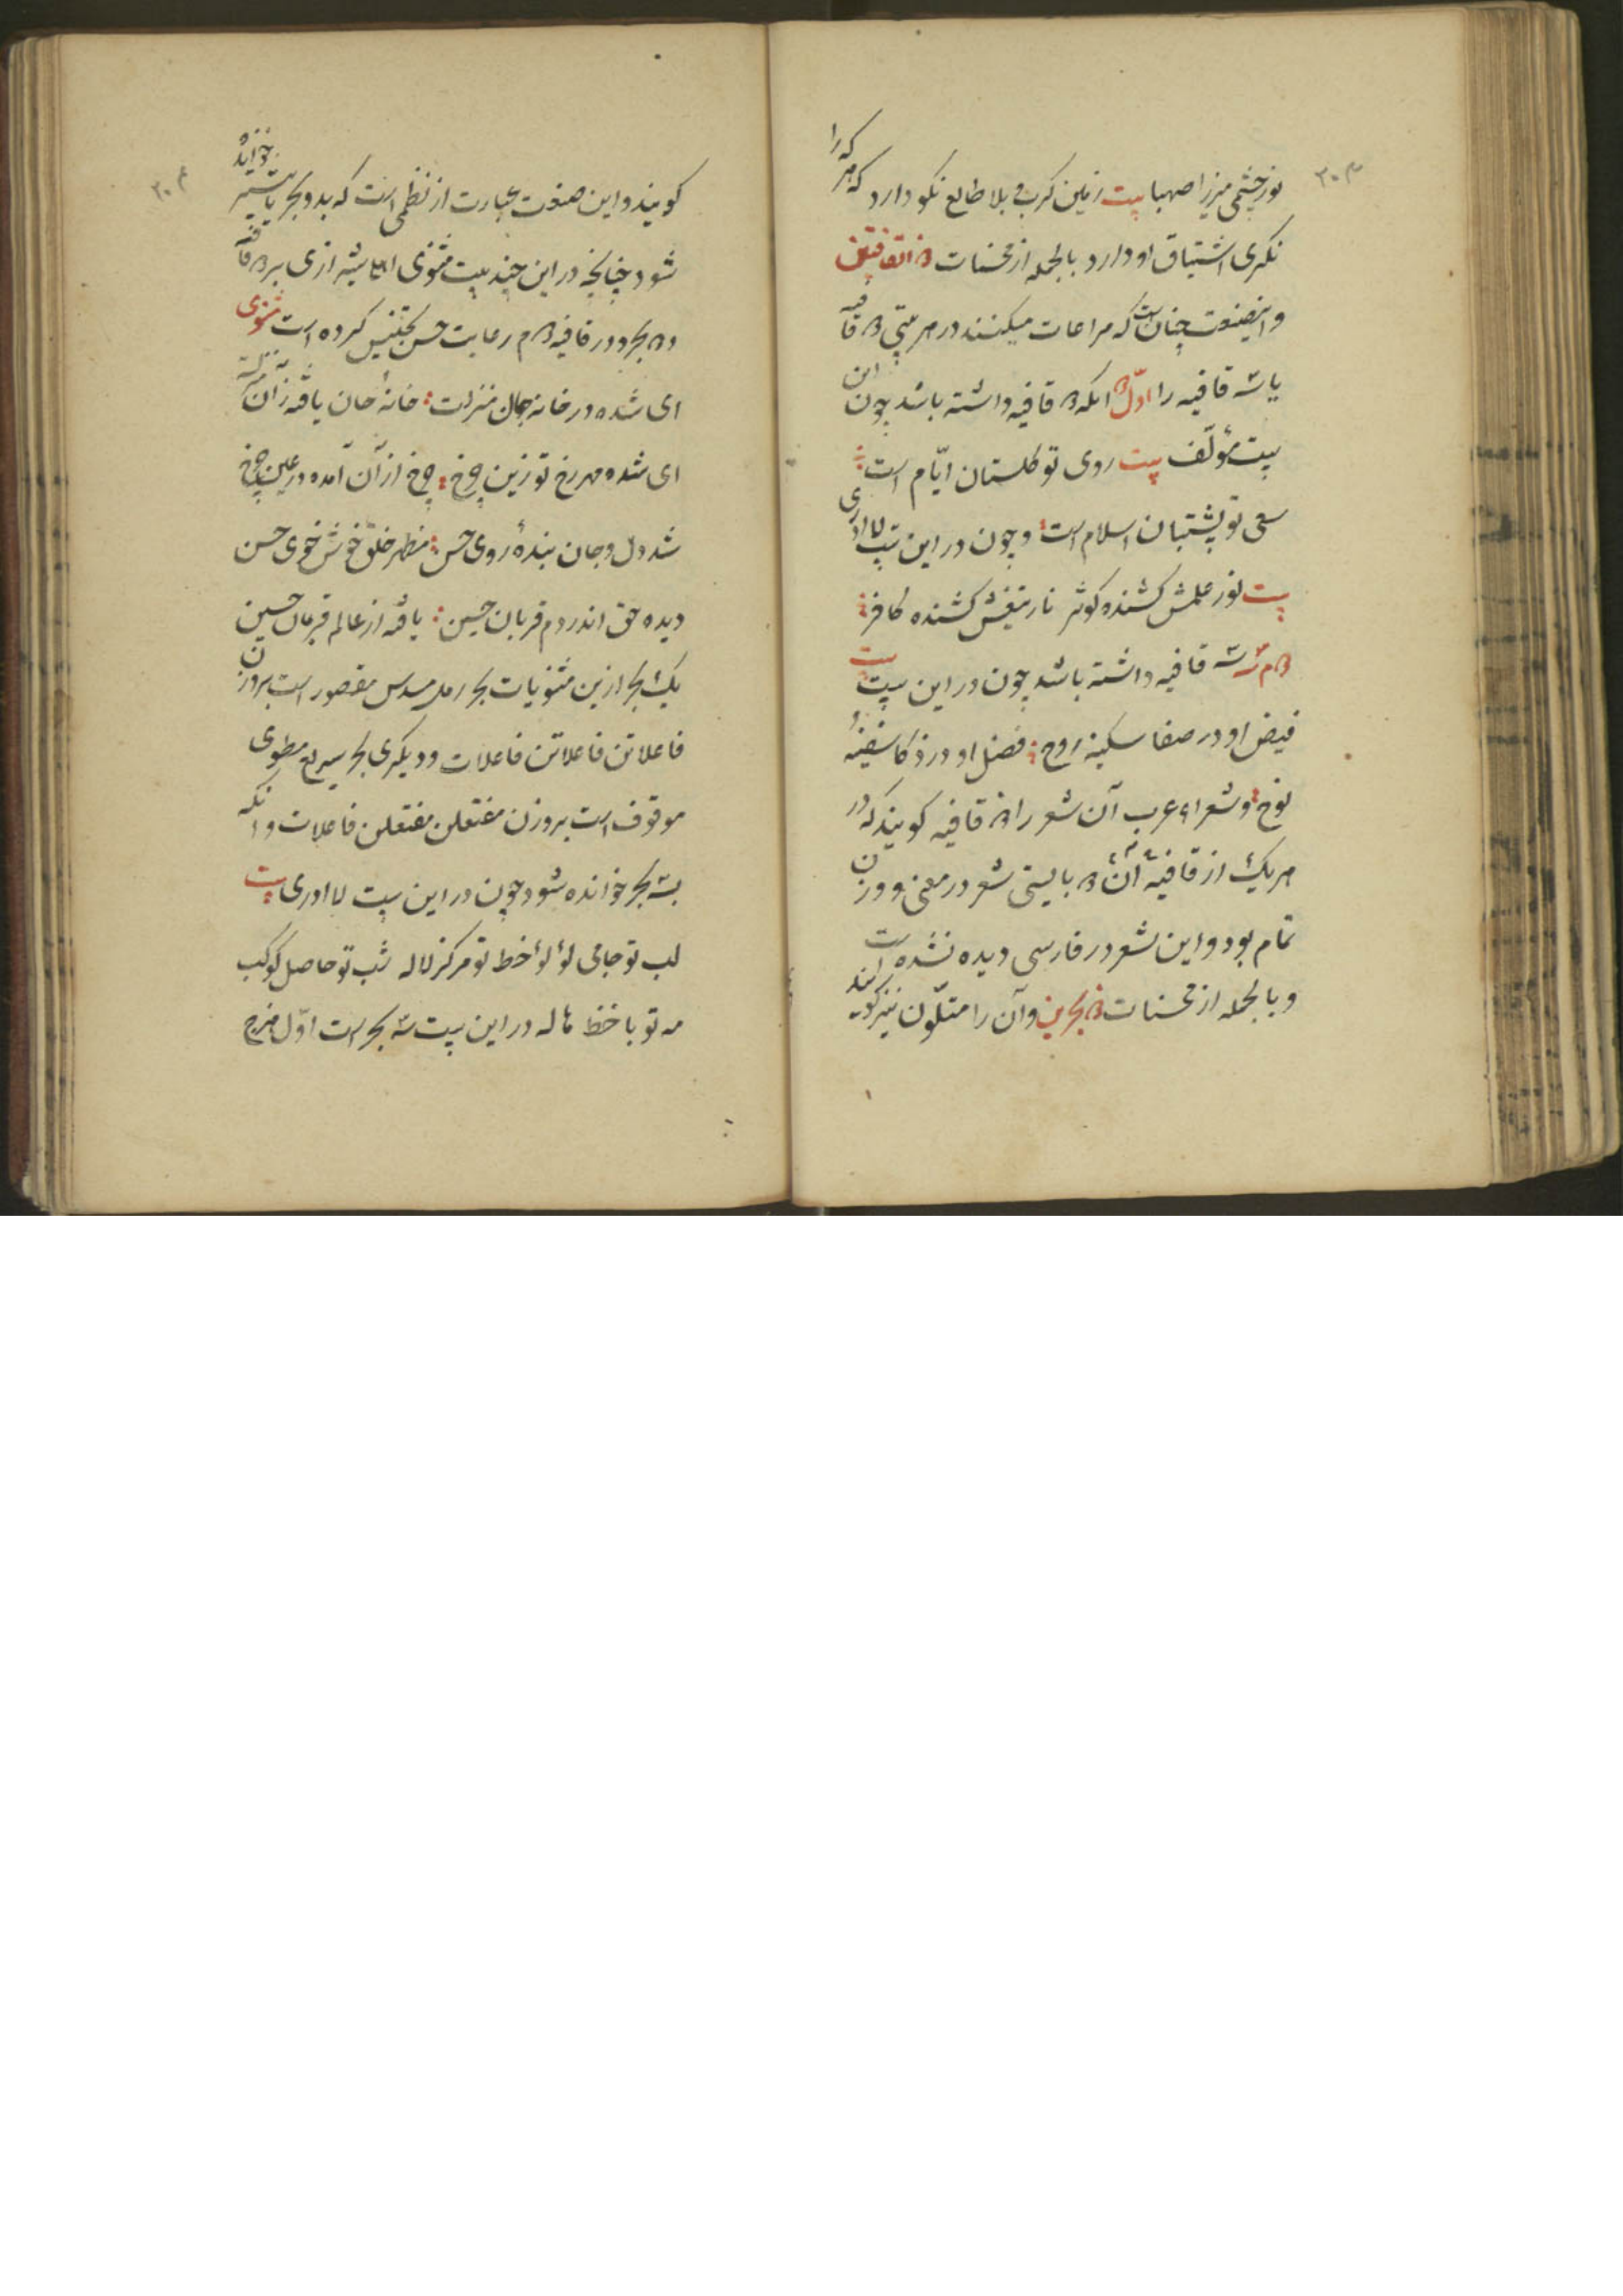 ۳۰۳
نور چشمی میرزا صهبا بیت زمین کرب و بلا طالع نکو دارد که هر که را
نکری اشتیاق او دارد بالجمله از محسنات ذو القافیتین
و اینصنعت چنان است که مراعات میکنند در هر بیتی دو قافیه
یا سه قافیه را اوّل انکه دو قافیه داشته باشد چون این
بیت مؤلّف بیت روی تو گلستان ایّام است
سعی تو پشتبان اسلام است و چون در این بیت لا ادری
بیت نور علمش کشنده کوثر نار تیغش کشنده کافر
دوم سه قافیه داشته باشد چون در این بیت بیت
فیض او در صفا سکینهٔ روح فضل او در ذکا سفینهٔ
نوح و شعراء عرب آن شعر را ذو قافیه کویند که در
هر یک از قافیهٔ آن دو بایستی شعر در معنی و وزن
تمام بود و این شعر در فارسی دیده نشده است
و بالجمله از محسنات ذو بحرین و آن را متلوّن نیز کویند
۳۰۴
کویند و این صنعت عبارت از نظمی است که بدو بحر یا بیشتر خوانده
شود چنانچه در این چند بیت مثنوی اهلی شیرازی بر دو قافیه
و دو بحر و در قافیه دوم رعایت حسن تجنیس کرده است مثنوی
ای شده در خانه جان منزلت خانه جان یافته زان منزلت
ای شده مهر رخ تو زین چرخ چرخ از آن آمده در عین چرخ
شد دل و جان بندهٔ روی حسن مظهر خلق خوش خوی حسن
دیده حق اندر دم قربان حسین یافته از عالم فرمان حسین
یک بحر ازین مثنویات بحر رمل مسدس مقصور است بر وزن
فاعلاتن فاعلاتن فاعلات و دیکری بحر سریع مطوی
موقوف است بر وزن مفتعلن مفتعلن فاعلات و انکه
بسه بحر خوانده شود چون در این بیت لا ادری بیت
لب تو جامی لؤلؤ خط تو مرکز لاله شب تو حاصل کوکب
مه تو با خط هاله در این بیت سه بحر است اوّل هزج